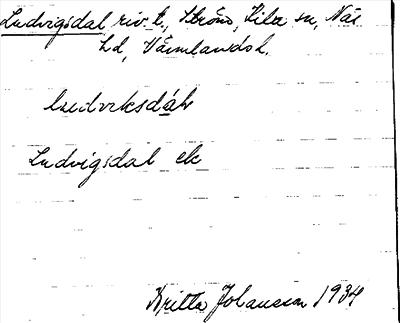 Ludvigsdal riv. t., Ström, Kila sn, Näs
hd, Värmlands l.
ludviksdáḷ
Ludvigsdal ek
Britta Johansson 1934